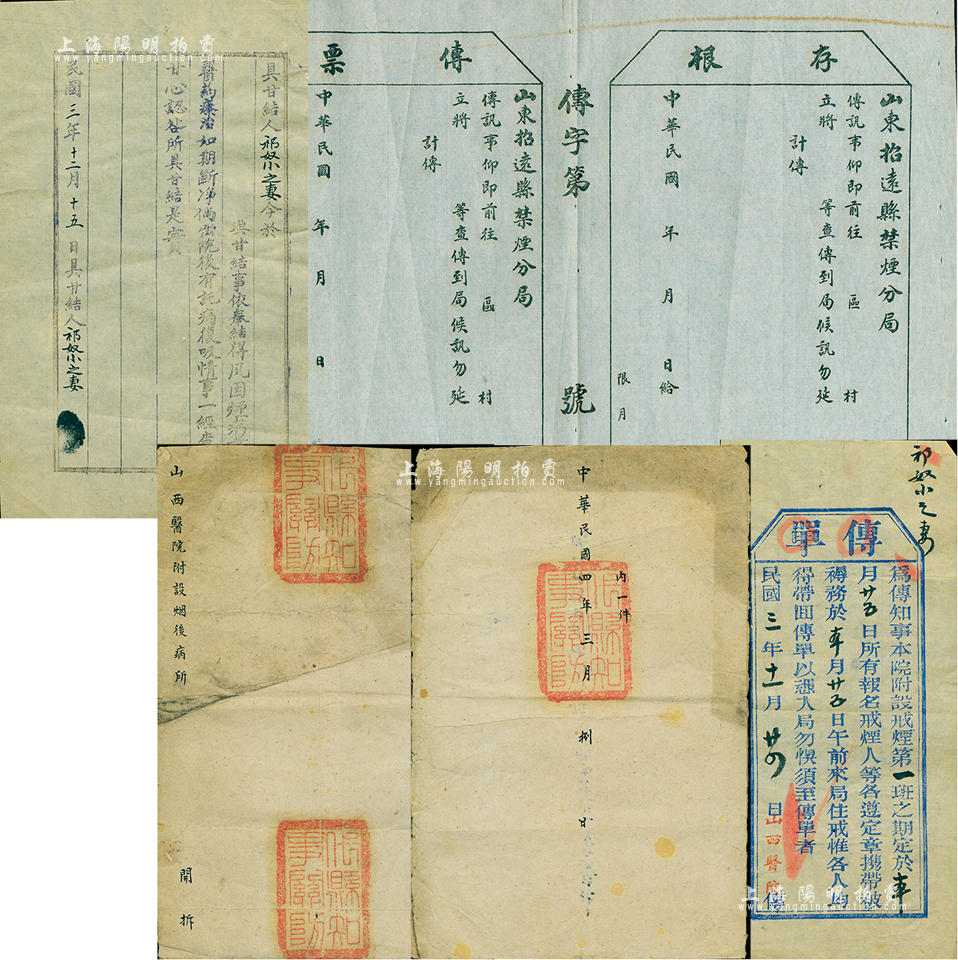 上海陽明拍賣
www.yangmingauction.com
具甘結人祁奴小之妻今於
與甘結事依奉結得夙因煙病
醫药藥治如期斷净倘出院後有託病復吸情事一經查
甘心認咎所具甘結是實
民國三年十二月十五日具甘結人祁奴小之妻
傳票
山東招遠縣禁煙分局
傳訊事仰即前往 區 村
立將 等查傳到局候訊勿延
計傳
中華民國 年 月 日
傳字第 號
存根
山東招遠縣禁煙分局
傳訊事仰即前往 區 村
立將 等查傳到局候訊勿延
計傳
中華民國 年 月 日給
限 月
祁奴小之妻
傳單
為傳知事本院附設戒煙第一班之期定於本
月廿五日所有報名戒煙人等各遵定章携帶被
褥務於本月廿五日午前來局住戒惟各人均
得帶回傳單以憑入局勿悞須至傳單者
民國三年十一月廿四日山西醫院傳
上海陽明拍賣
www.yangmingauction.com
內一件
中華民國四年三月捌日
上海陽明拍賣
www.yangmingauction.com
山西醫院附設烟後病所
開拆